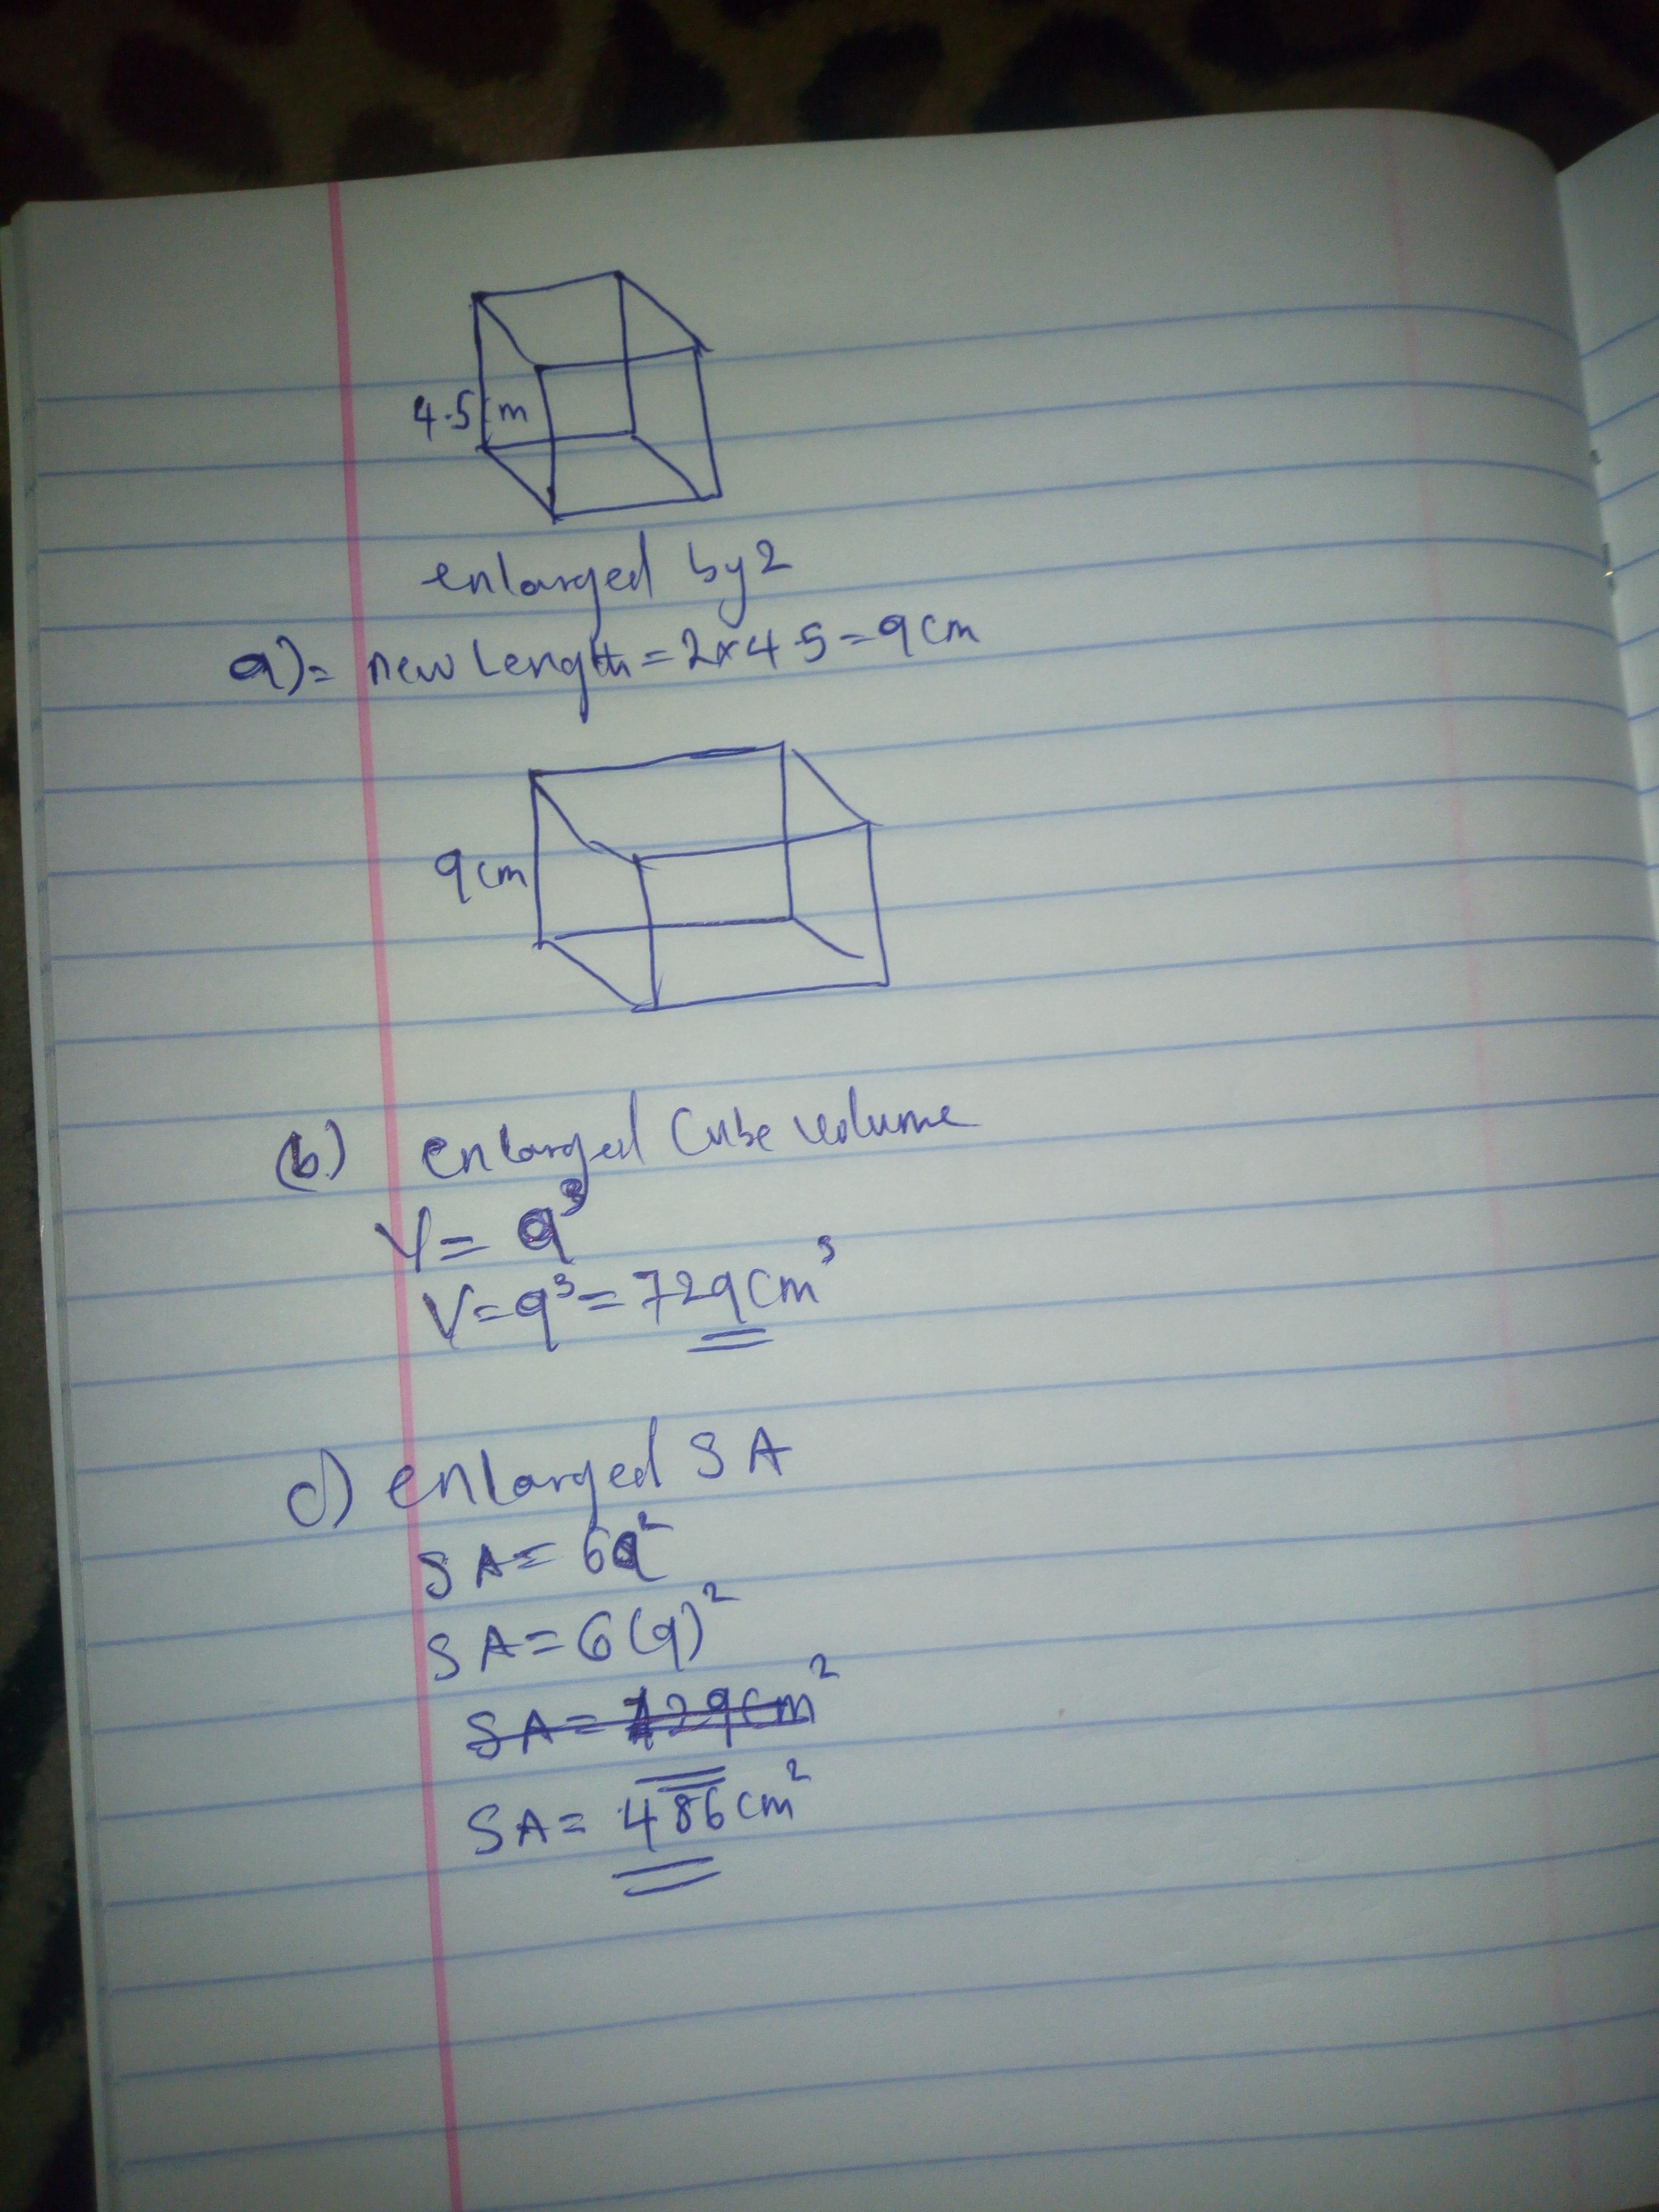 4.5cm
enlarged by 2
a) = new Length = 2x4.5 = 9cm
9cm
(b) enlarged Cube volume
V = a³
V = 9³ = 729cm³
c) enlarged SA
SA = 6a²
SA = 6(9)²
SA = 729cm²
SA = 486cm²